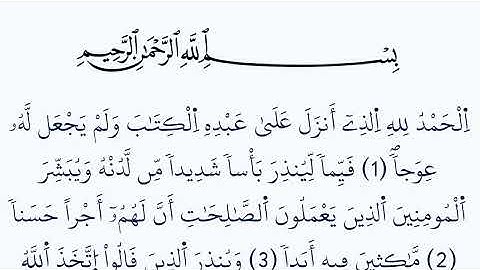 بِسْمِ اِ۬للَّهِ اِ۬لرَّحْمَٰنِ اِ۬لرَّحِيمِ
اِ۬لْحَمْدُ لِلهِ اِ۬لذِےٓ أَنزَلَ عَلَىٰ عَبْدِهِ اِ۬لْكِتَٰبَ وَلَمْ يَجْعَل لَّهُۥ
عِوَجاٗۖ (1) قَيِّماٗ لِّيُنذِرَ بَأْساٗ شَدِيداٗ مِّن لَّدُنْهُ وَيُبَشِّرَ
اَ۬لْمُومِنِينَ اَ۬لذِينَ يَعْمَلُونَ اَ۬لصَّٰلِحَٰتِ أَنَّ لَهُمُۥٓ أَجْراً حَسَناٗ
(2) مَّٰكِثِينَ فِيهِ أَبَداٗ (3) وَيُنذِرَ اَ۬لذِينَ قَالُواْ اُ۪تَّخَذَ اَ۬للَّهُ